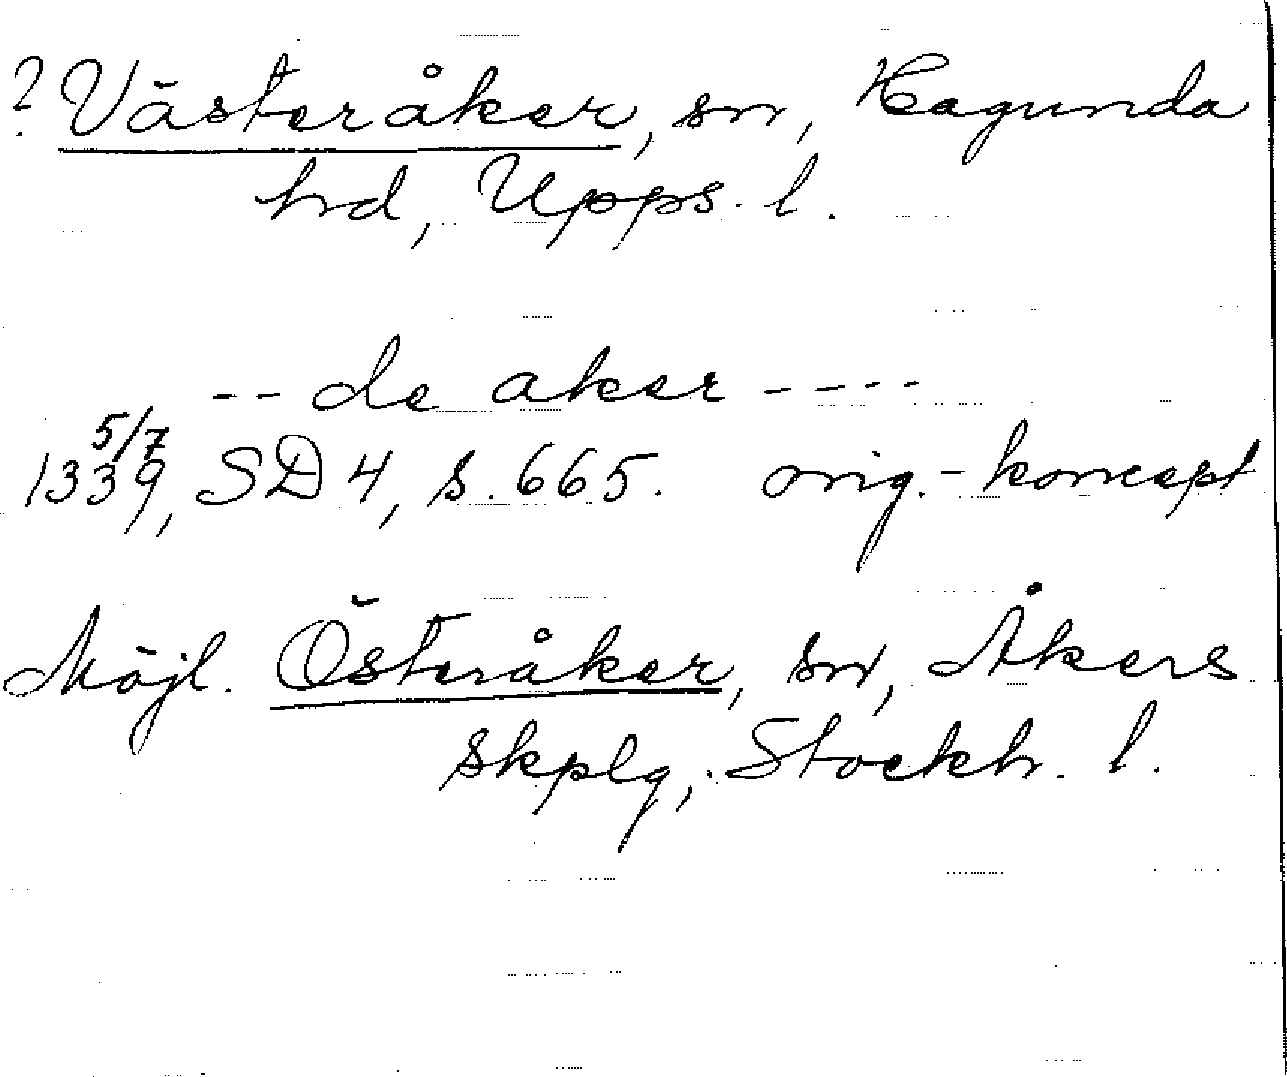 ? Västeråker, sn, Hagunda
hrd, Upps. l.
-- de aker ----
5/7
1339, SD 4, s. 665. orig.-koncept
Möjl. Österåker, sn, Åkers
skplg, Stockh. l.